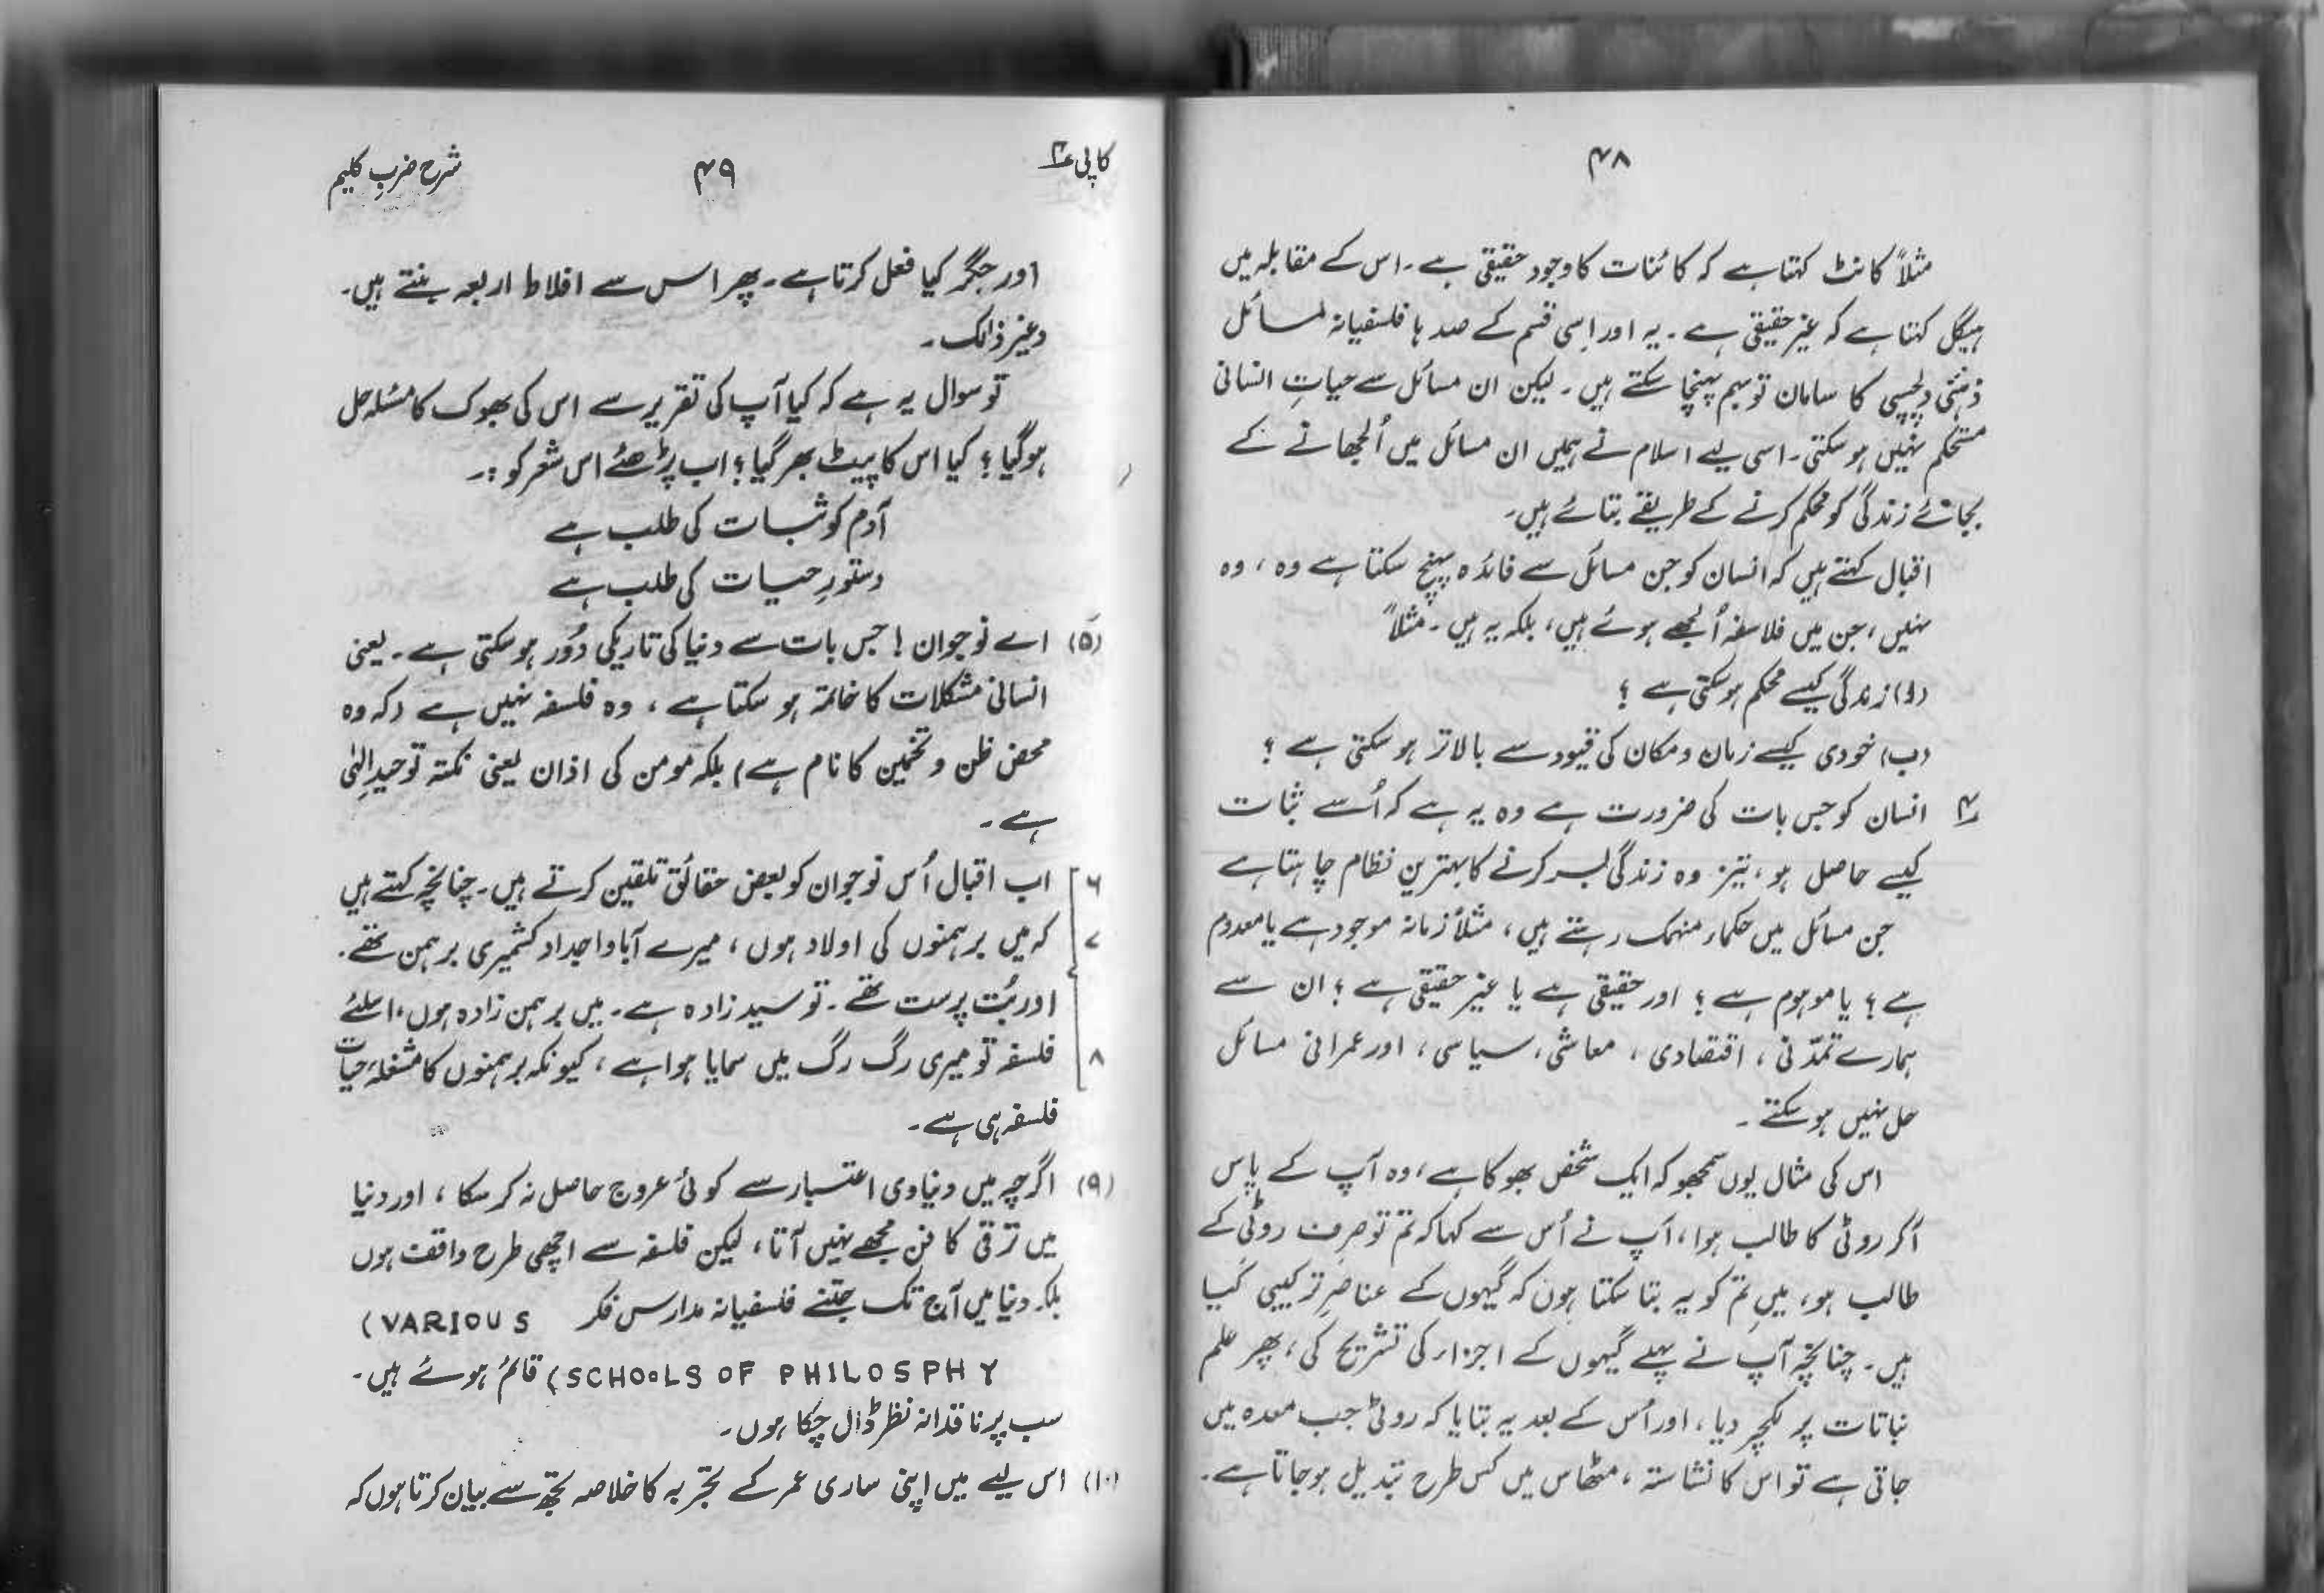 ۴۸
مثلاً کانٹ کہتا ہے کہ کائنات کا وجود حقیقی ہے۔ اس کے مقابلہ میں
ہیگل کہتا ہے کہ غیر حقیقی ہے۔ یہ اور اِسی قسم کے صدہا فلسفیانہ مسائل
ذہنی دلچسپی کا سامان تو بہم پہنچا سکتے ہیں۔ لیکن ان مسائل سے حیاتِ انسانی
مستحکم نہیں ہو سکتی۔ اسی لیے اسلام نے ہمیں ان مسائل میں اُلجھانے کے
بجائے زندگی کو محکم کرنے کے طریقے بتائے ہیں۔
اقبال کہتے ہیں کہ انسان کو جن مسائل سے فائدہ پہنچ سکتا ہے وہ، وہ
نہیں، جن میں فلاسفہ اُلجھے ہوئے ہیں، بلکہ یہ ہیں۔ مثلاً
(ا) زندگی کیسے محکم ہو سکتی ہے ؟
(ب) خودی کیسے زمان و مکان کی قیود سے بالاتر ہو سکتی ہے ؟
۴؎ انسان کو جس بات کی ضرورت ہے وہ یہ ہے کہ اُسے ثبات
کیسے حاصل ہو، نیز وہ زندگی بسر کرنے کا بہترین نظام چاہتا ہے
جن مسائل میں حکماء منہمک رہتے ہیں، مثلاً زمانہ موجود ہے یا معدوم
ہے ؟ یا موہوم ہے ؟ اور حقیقی ہے یا غیر حقیقی ہے ؟ ان سے
ہمارے تمدّنی، اقتصادی، معاشی، سیاسی، اور عمرانی مسائل
حل نہیں ہو سکتے۔
اس کی مثال یوں سمجھو کہ ایک شخص بھوکا ہے، وہ آپ کے پاس
آکر روٹی کا طالب ہوا، آپ نے اُس سے کہا کہ تم تو صرف روٹی کے
طالب ہو، میں تم کو یہ بتا سکتا ہوں کہ گیہوں کے عناصرِ ترکیبی کیا
ہیں۔ چنانچہ آپ نے پہلے گیہوں کے اجزاء کی تشریح کی، پھر علم
نباتات پر لکچر دیا، اور اُس کے بعد یہ بتایا کہ روٹی جب معدہ میں
جاتی ہے تو اس کا نشاستہ، مٹھاس میں کس طرح تبدیل ہو جاتا ہے۔
کاپی ۴ ۴۹ شرح ضربِ کلیم
اور جگر کیا فعل کرتا ہے۔ پھر اس سے اخلاط اربعہ بنتے ہیں۔
وغیر ذالک۔
تو سوال یہ ہے کہ کیا آپ کی تقریر سے اس کی بھوک کا مسئلہ حل
ہو گیا ؟ کیا اس کا پیٹ بھر گیا ؟ اب پڑھئے اس شعر کو :۔
آدم کو ثبات کی طلب ہے
دستورِ حیات کی طلب ہے
(۵) اے نوجوان ! جس بات سے دنیا کی تاریکی دُور ہو سکتی ہے۔ یعنی
انسانی مشکلات کا خاتمہ ہو سکتا ہے، وہ فلسفہ نہیں ہے (کہ وہ
محض ظن و تخمین کا نام ہے) بلکہ مومن کی اذان یعنی نکتہ توحیدِ الٰہی
ہے۔
۶ اب اقبال اُس نوجوان کو بعض حقائق تلقین کرتے ہیں۔ چنانچہ کہتے ہیں
۷ کہ میں برہمنوں کی اولاد ہوں، میرے آباو اجداد کشمیری برہمن تھے۔
اور بُت پرست تھے۔ تو سید زادہ ہے۔ میں برہمن زادہ ہوں، اسلئے
۸ فلسفہ تو میری رگ رگ میں سمایا ہوا ہے، کیونکہ برہمنوں کا مشغلۂ حیات
فلسفہ ہی ہے۔
(۹) اگرچہ میں دنیاوی اعتبار سے کوئی عروج حاصل نہ کر سکا، اور دنیا
میں ترقی کا فن مجھے نہیں آتا، لیکن فلسفہ سے اچھی طرح واقف ہوں
بلکہ دنیا میں آج تک جتنے فلسفیانہ مدارس فکر (VARIOUS
SCHOOLS OF PHILOSPHY) قائم ہوئے ہیں۔
سب پر ناقدانہ نظر ڈال چُکا ہوں۔
(۱۰) اس لیے میں اپنی ساری عمر کے تجربہ کا خلاصہ تجھ سے بیان کرتا ہوں کہ